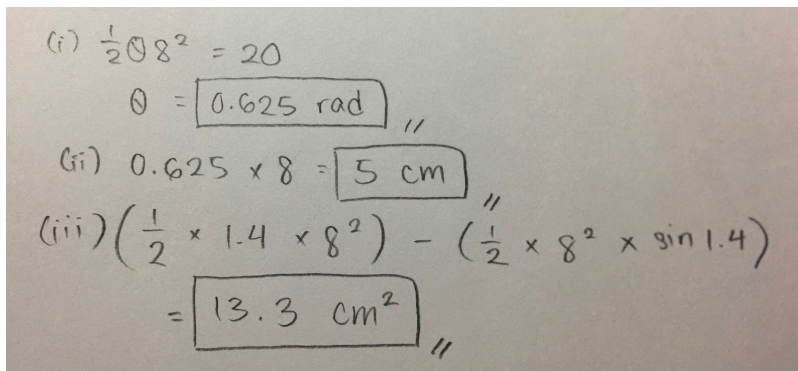 (i) ½θ8² = 20
θ = 0.625 rad //
(ii) 0.625 × 8 = 5 cm //
(iii) (½ × 1.4 × 8²) - (½ × 8² × sin 1.4)
= 13.3 cm² //